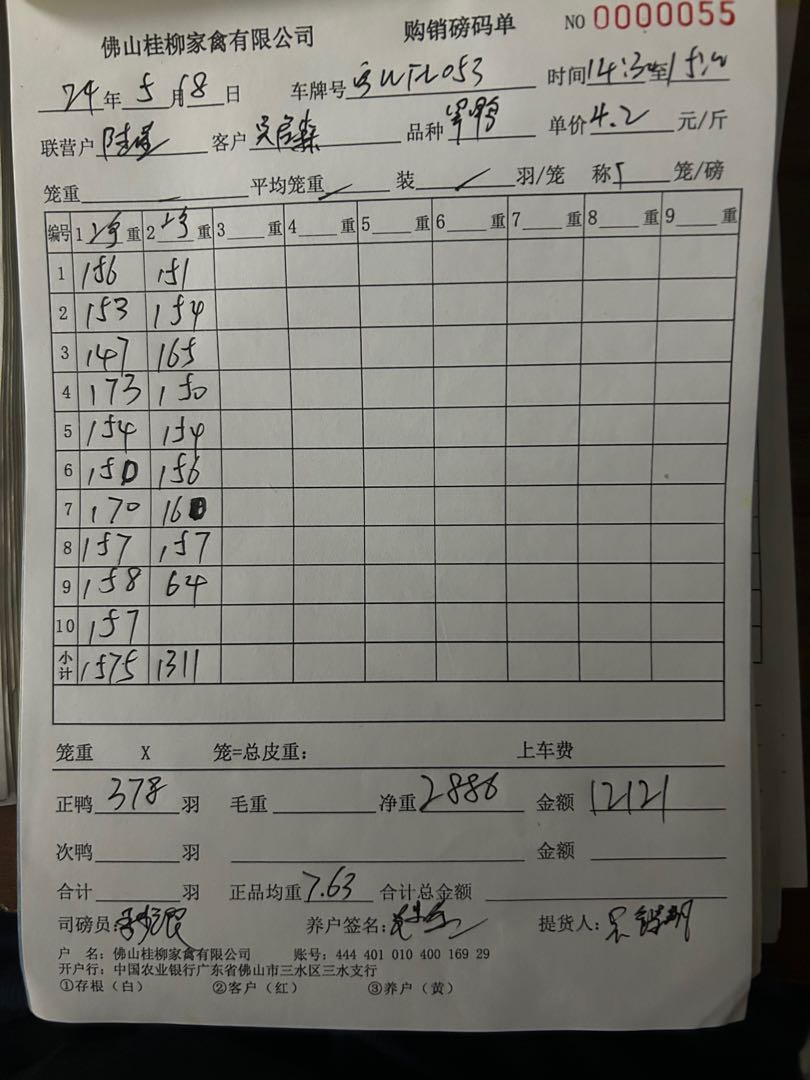 佛山桂柳家禽有限公司 购销磅码单 NO 0000055
24年 5月 18日 车牌号 时间14:30至15:20
联营户 客户 品种 单价4.2元/斤
笼重 平均笼重 装 羽/笼 称 笼/磅
编号 1 重 2 重 3 重 4 重 5 重 6 重 7 重 8 重 9 重
1 156 151
2 153 154
3 147 165
4 173 150
5 154 154
6 150 156
7 170 160
8 157 157
9 158 64
10 157
小计 1575 1311
笼重 X 笼=总皮重: 上车费
正鸭 378 羽 毛重 净重 2886 金额 12121
次鸭 羽 金额
合计 羽 正品均重 7.63 合计总金额
司磅员: 养户签名: 提货人:
户 名: 佛山桂柳家禽有限公司 账号: 444 401 010 400 169 29
开户行: 中国农业银行广东省佛山市三水区三水支行
①存根（白） ②客户（红） ③养户（黄）